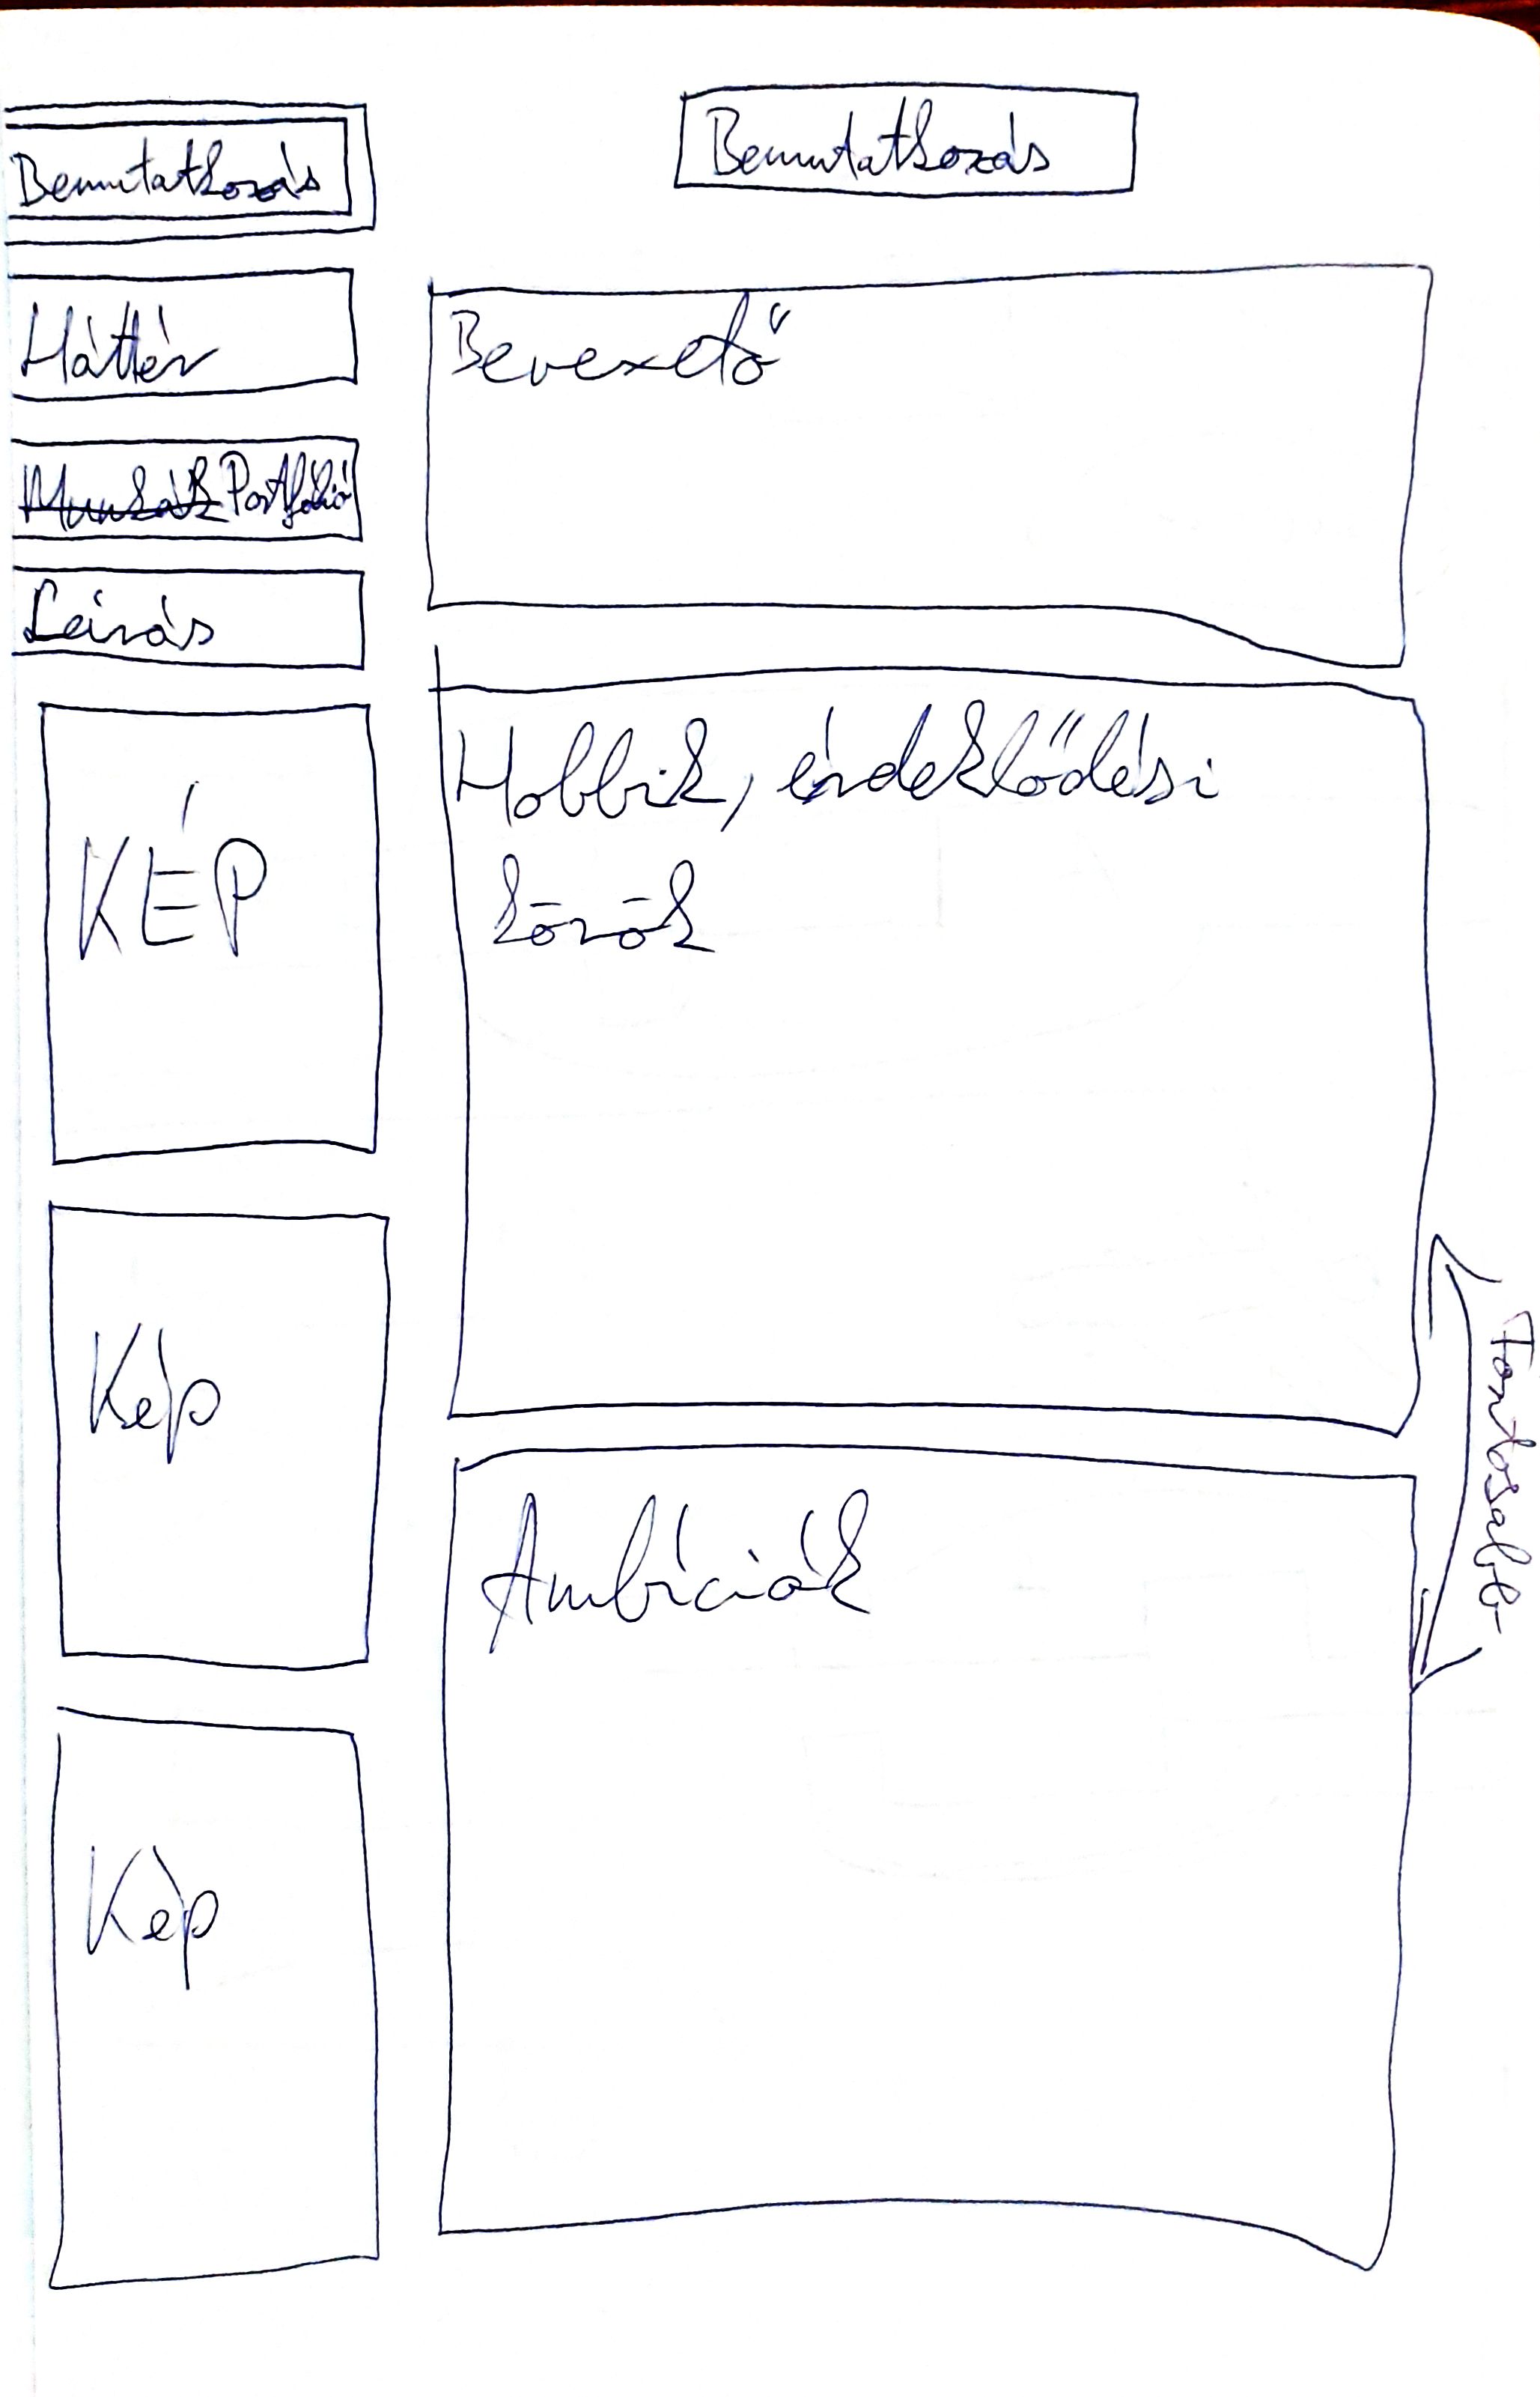 Bemutatkozás
Háttér
Munkák Portfólió
Leírás
KÉP
Kép
Kép
Bemutatkozás
Bevezető
Hobbik, érdeklődési
körök
Ambíciók